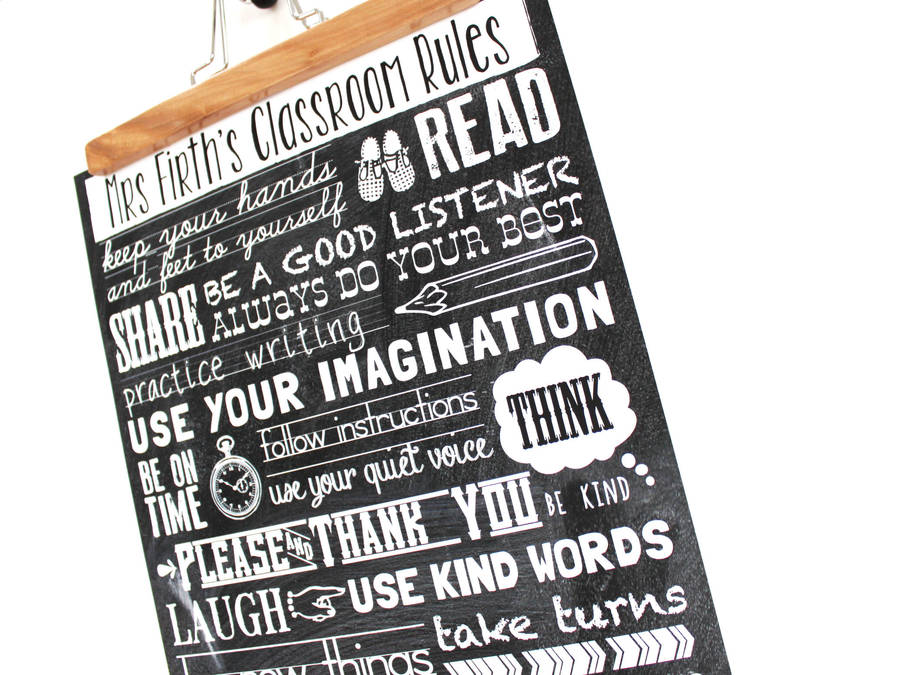 Mrs Firth's Classroom Rules
keep your hands
and feet to yourself
READ
SHARE
BE A GOOD LISTENER
ALWAYS DO YOUR BEST
practice writing
USE YOUR IMAGINATION
BE ON
TIME
follow instructions
use your quiet voice
THINK
BE KIND
PLEASE AND THANK YOU
LAUGH
USE KIND WORDS
take turns
things